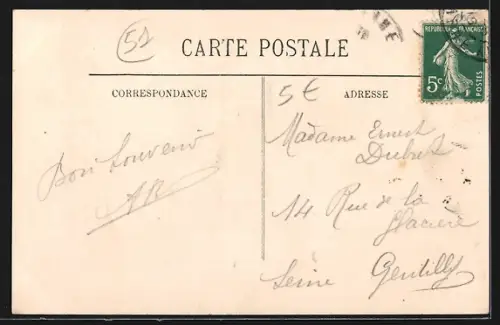 51
CARTE POSTALE
REPUBLIQUE FRANÇAISE
5c
POSTES
CORRESPONDANCE
5€
ADRESSE
Bon Souvenir
AR
Madame Ernest
Dubret
14 Rue de la
Glacière
Seine Gentilly